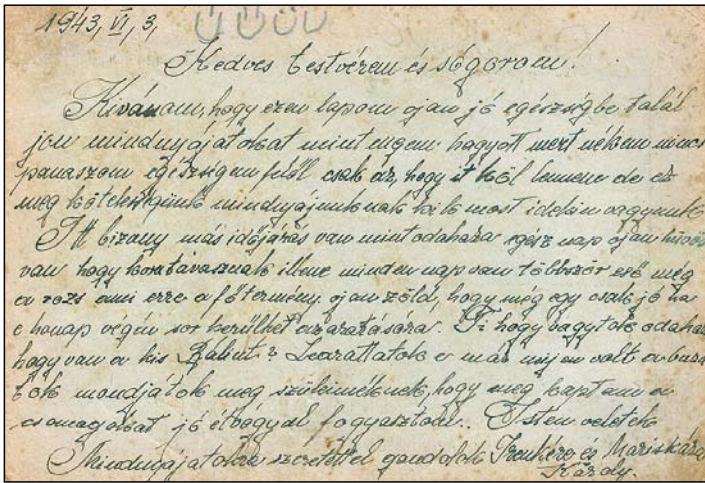 1943, VI, 3,
Kedves testvérem és sógorom!
Kivánam, hogy ezen lapom ojan jó egészségbe talál-
jon mindnyájatokat mint engem hagyott mert nékem nincs
panaszom egészségem felől csak az, hogy it köl lennem de ez
meg kötelességünk mindnyájunknak kik most idekin vagyunk
Itt bizony más időjárás van mint odahaza egész nap ojan hüvös
van hogy koratavasznak illene minden nap van többször eső még
a rozs ami erre a főtermény ojan zöld, hogy még egy csak jó ha
e honap végén sor kerülhet az aratására. Ti hogy vagytok odahaz
hogy van a kis Bálint? Learattatok e már mijen volt a buza
tök mondjátok meg szüleiméknek, hogy meg kaptam a
csomagokat jó étvágyal fogyasztom. Isten veletek
Mindnyájatokra szeretettel gondolok Irenkére és Mariskára
Károly.